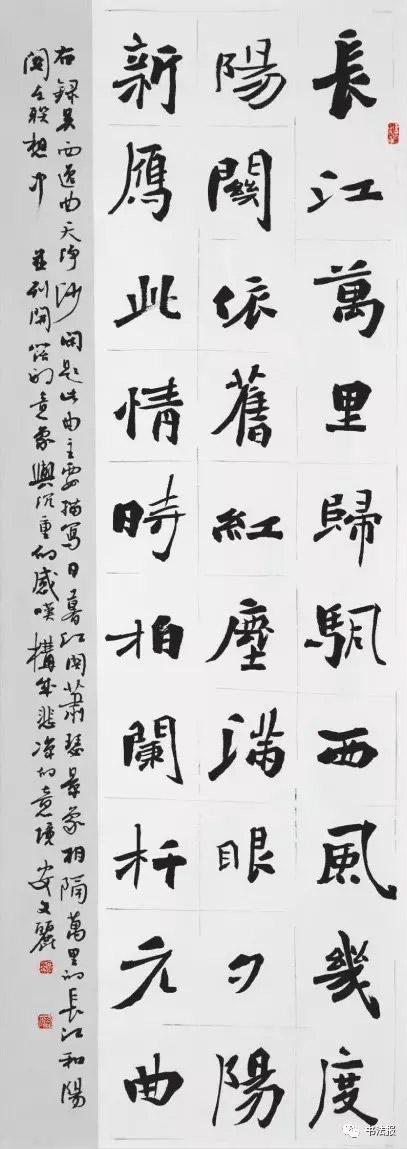 長江萬里歸颿西風幾度
陽關依舊紅塵滿眼夕陽
新鴈此情時拍闌杆元曲
右錄吳西逸曲天净沙閑題此曲主要描寫日暮江関蕭瑟景象相隔萬里的長江和陽
関在聯想中並列開闊的意象與沉重的感嘆構成悲凉的意境安文麗
书法报